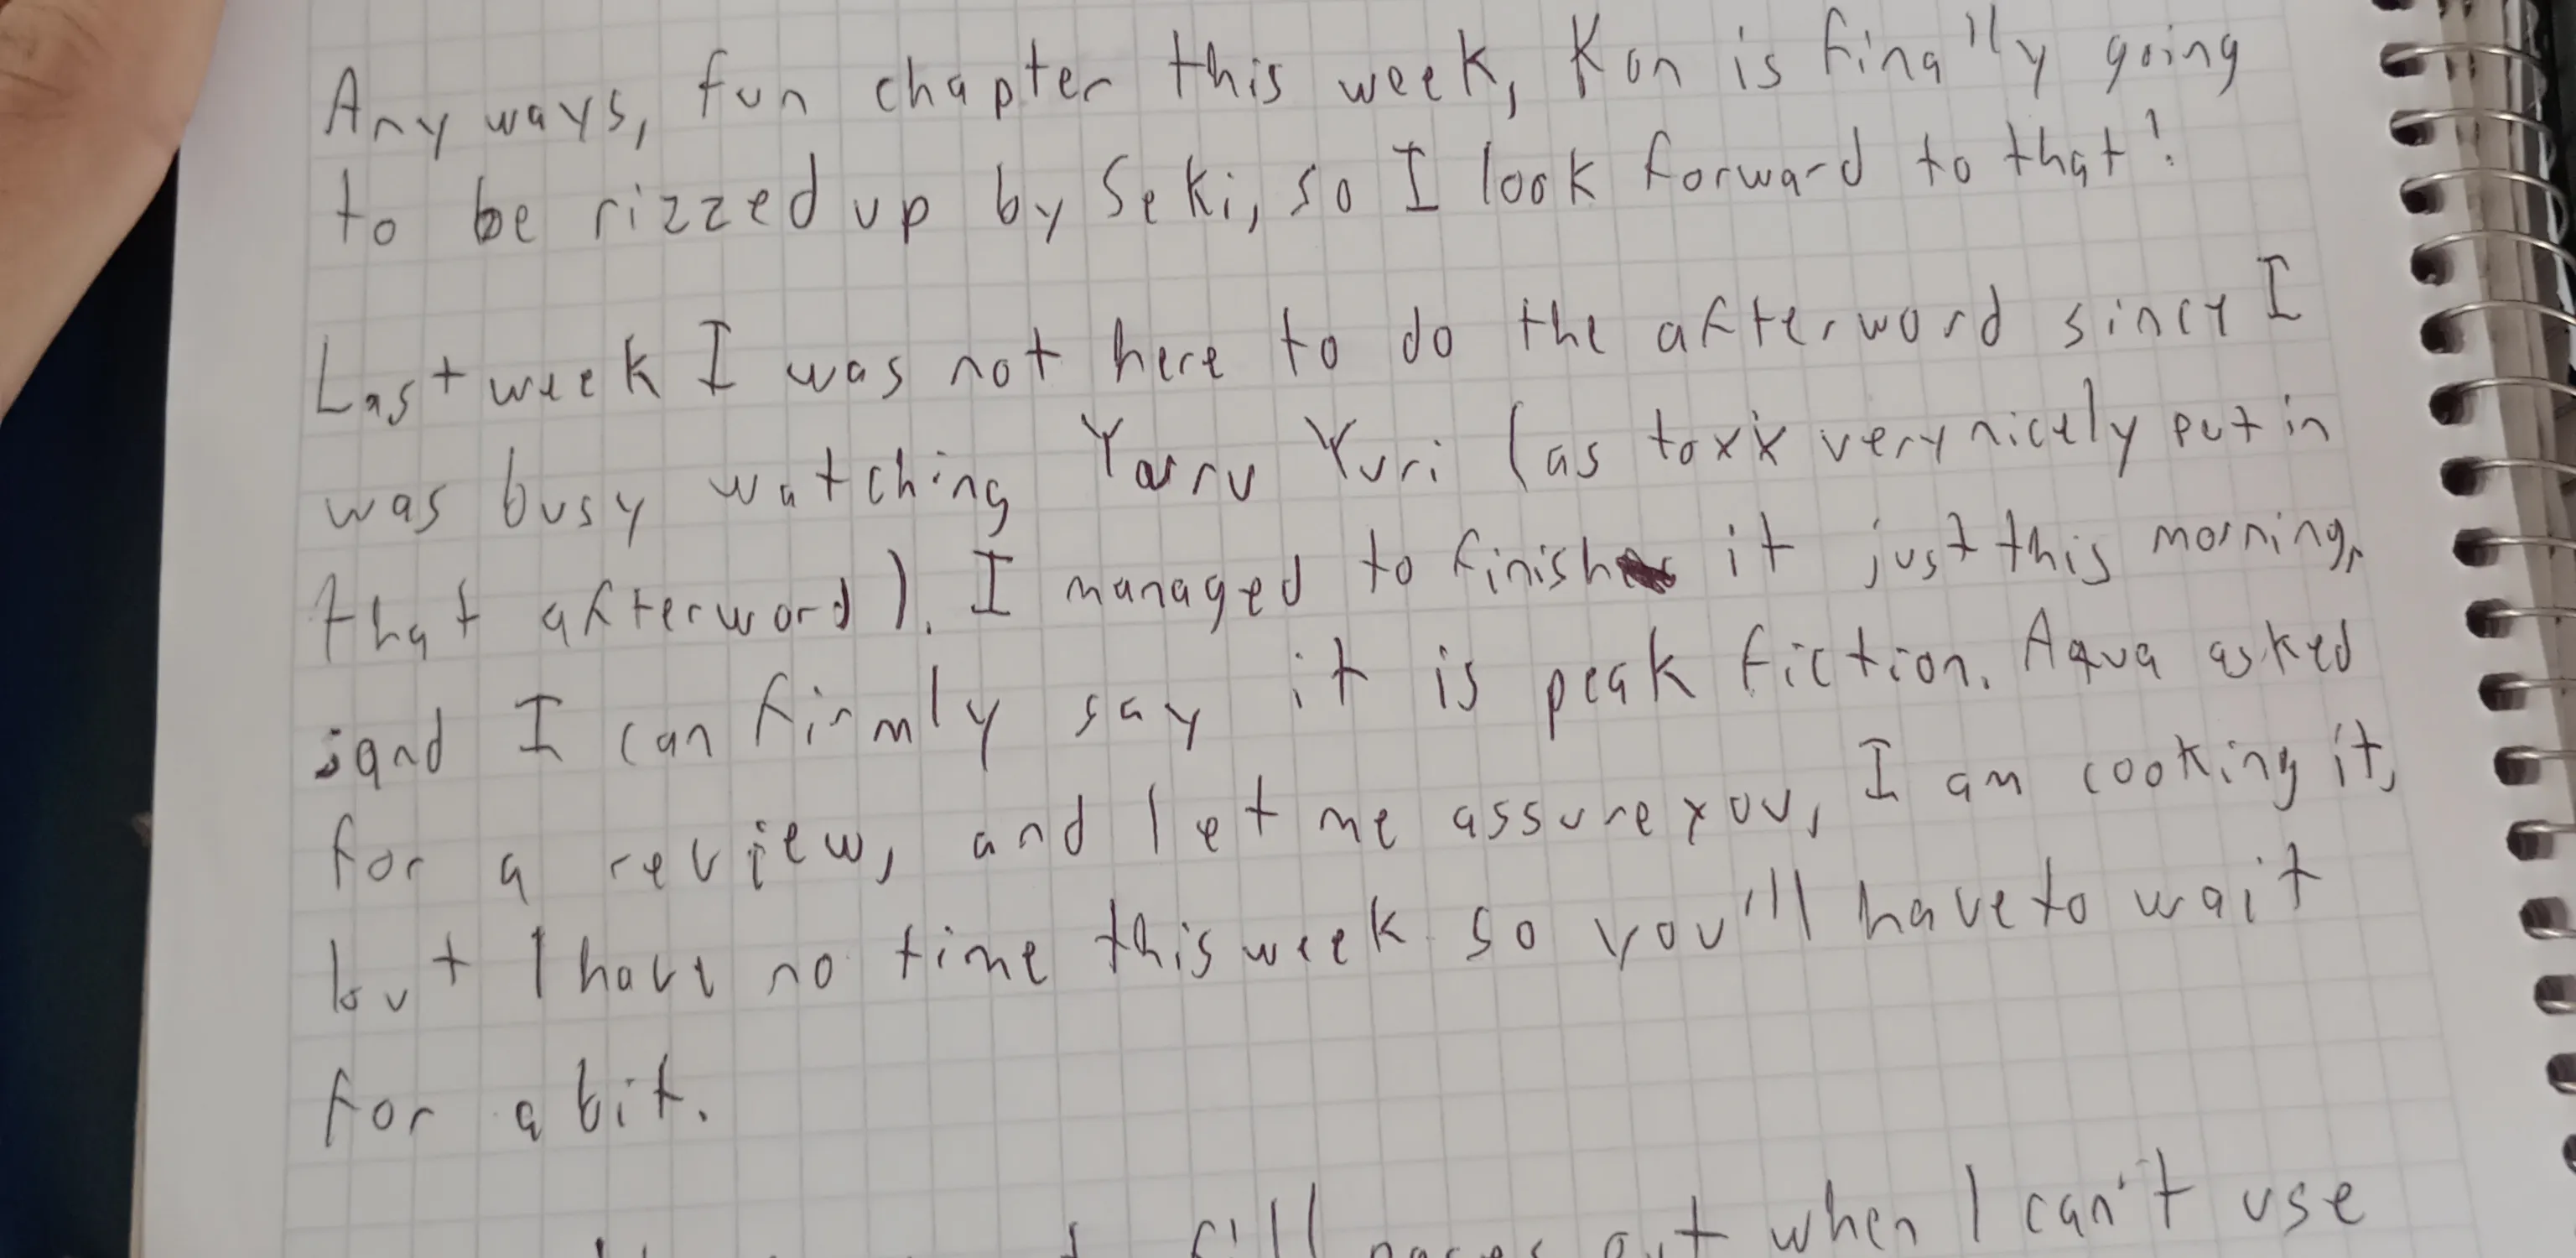 Anyways, fun chapter this week, Kon is finally going
to be rizzed up by Seki, so I look forward to that!
Last week I was not here to do the afterword since I
was busy watching Yuru Yuri (as toxx very nicely put in
that afterword). I managed to finish it just this morning,
and I can firmly say it is peak fiction. Aqua asked
for a review, and let me assure you, I am cooking it,
but I have no time this week so you'll have to wait
for a bit.
fill when I can't use